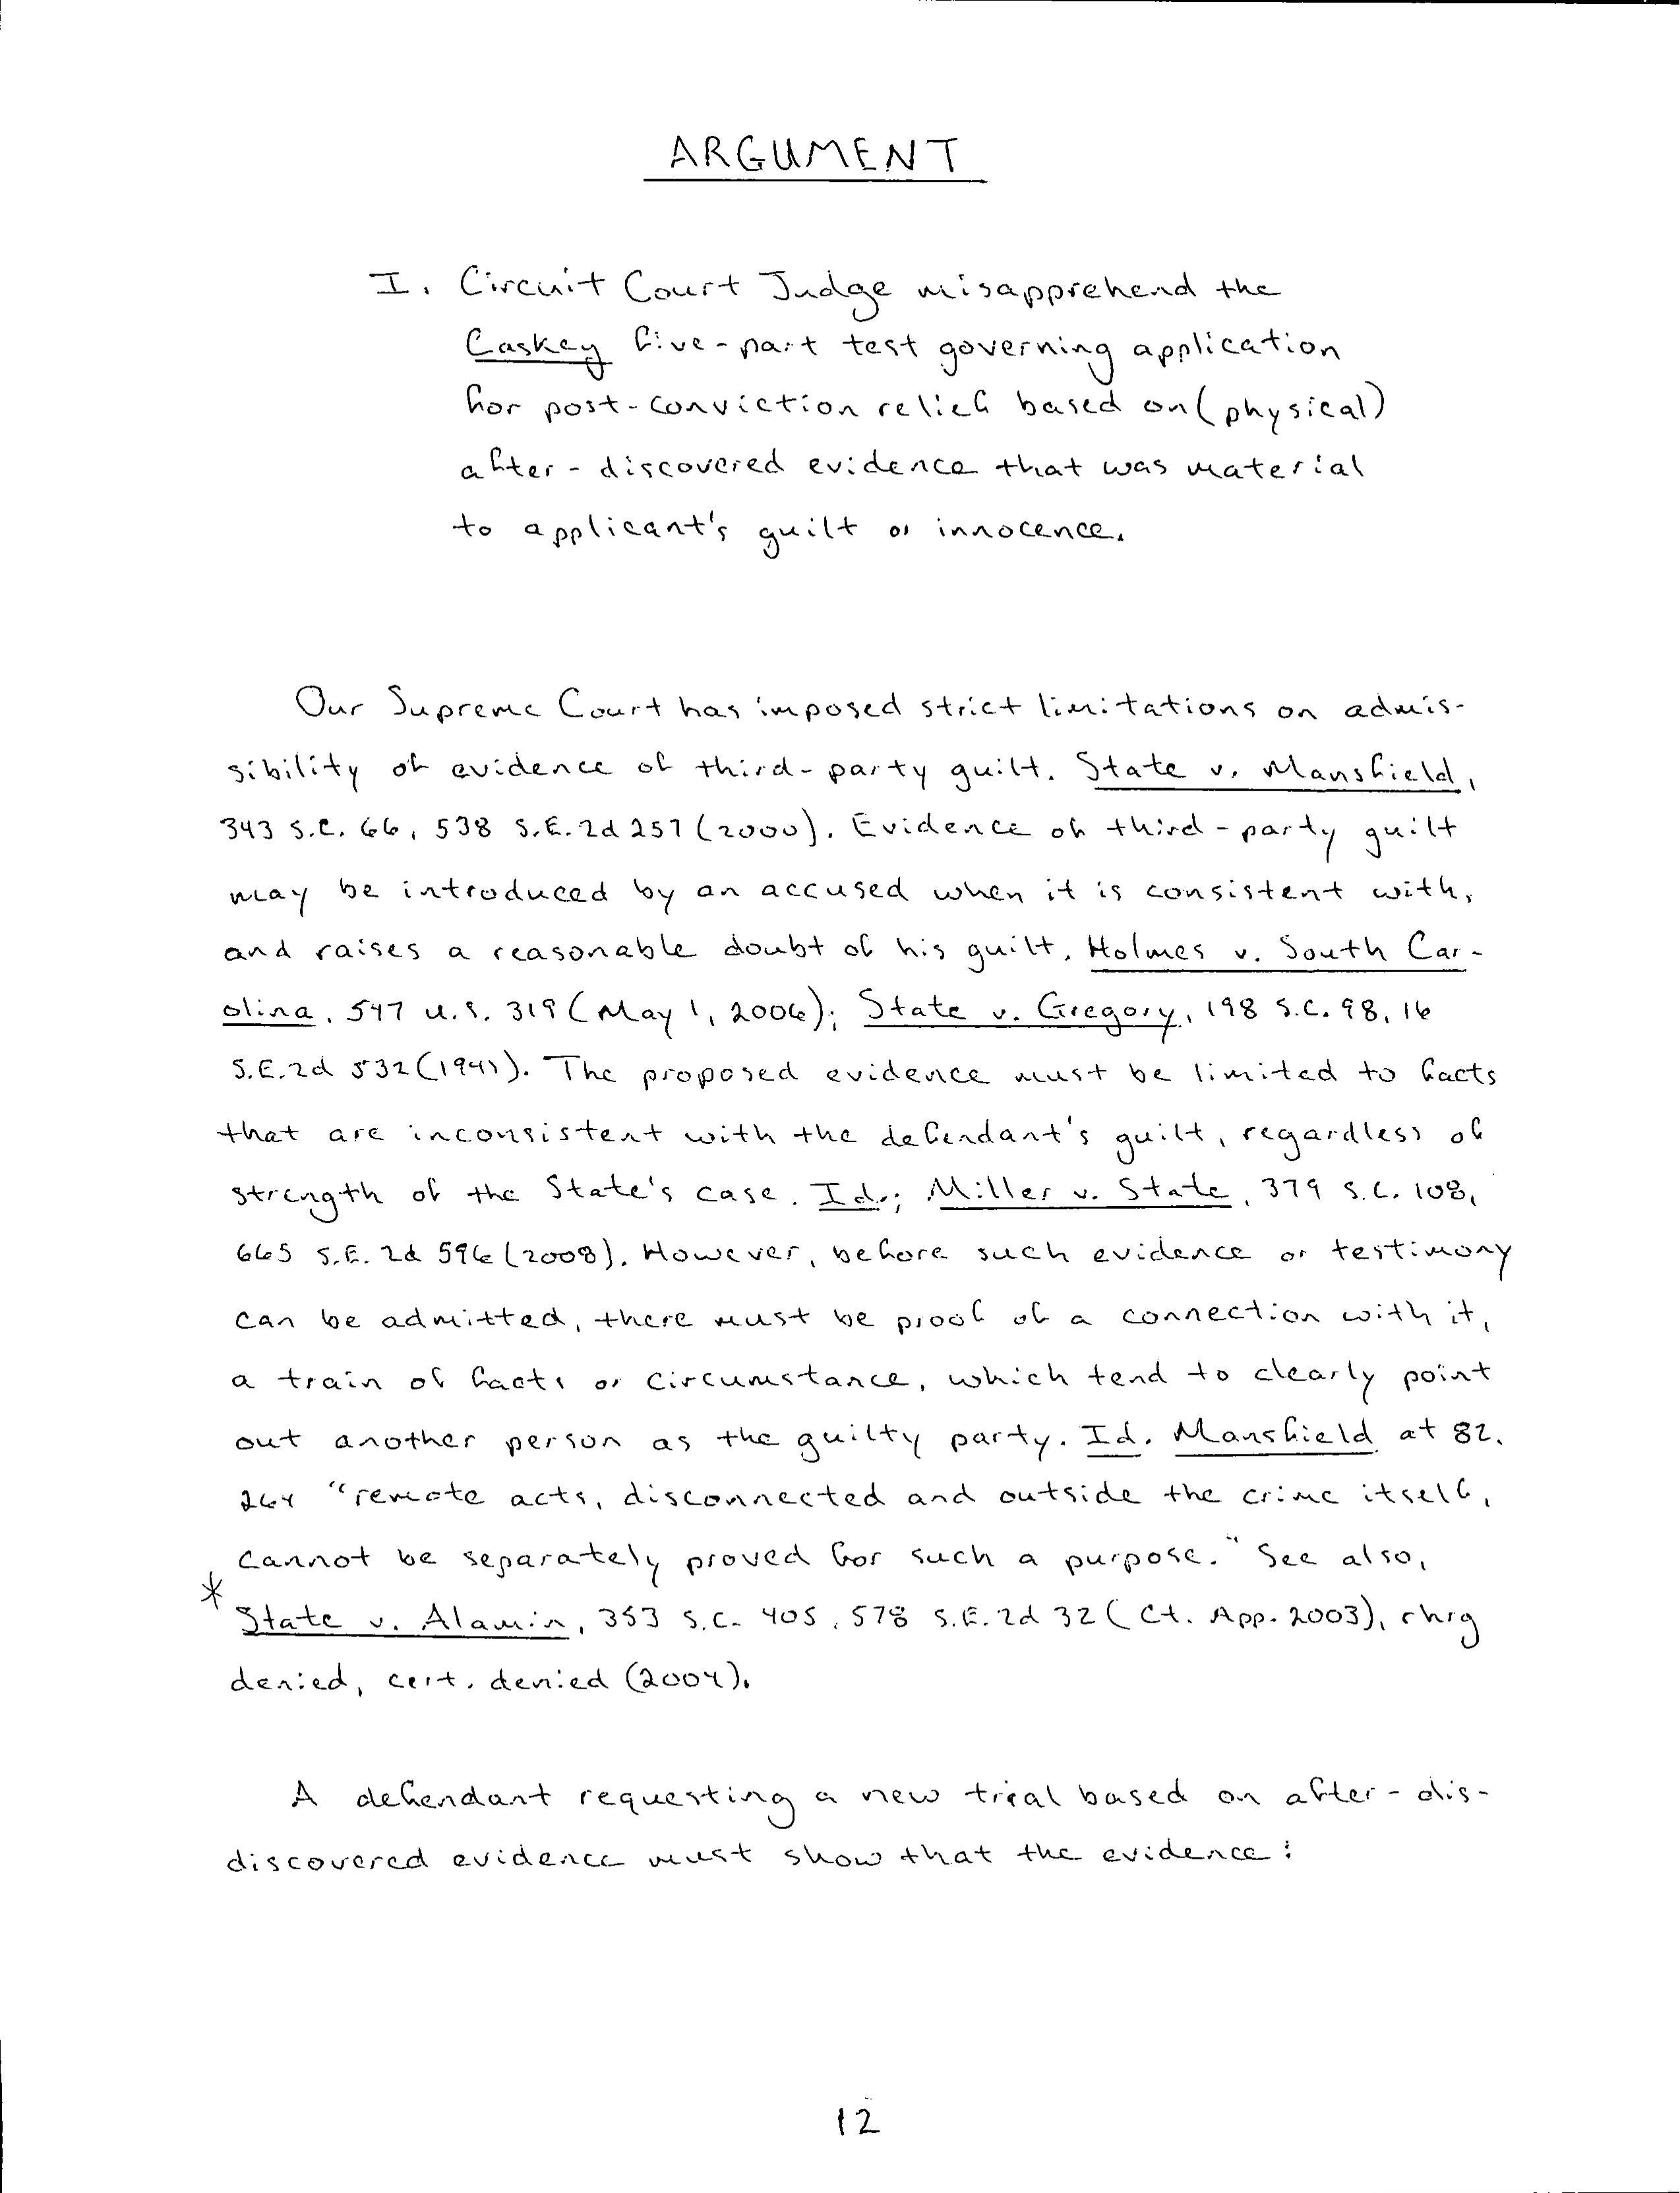 ARGUMENT
I. Circuit Court Judge misapprehend the
Caskey five-part test governing application
for post-conviction relief based on (physical)
after-discovered evidence that was material
to applicant's guilt or innocence.
Our Supreme Court has imposed strict limitations on admis-
sibility of evidence of third-party guilt. State v. Mansfield,
343 S.C. 66, 538 S.E.2d 257 (2000). Evidence of third-party guilt
may be introduced by an accused when it is consistent with,
and raises a reasonable doubt of his guilt. Holmes v. South Car-
olina, 547 U.S. 319 (May 1, 2006); State v. Gregory, 198 S.C. 98, 16
S.E.2d 532 (1941). The proposed evidence must be limited to facts
that are inconsistent with the defendant's guilt, regardless of
strength of the State's case. Id.; Miller v. State, 379 S.C. 108,
665 S.E.2d 596 (2008). However, before such evidence or testimony
can be admitted, there must be proof of a connection with it,
a train of facts or circumstance, which tend to clearly point
out another person as the guilty party. Id. Mansfield at 82.
264 "remote acts, disconnected and outside the crime itself,
cannot be separately proved for such a purpose." See also,
* State v. Alamin, 353 S.C. 405, 578 S.E.2d 32 (Ct. App. 2003), rhrg
denied, cert. denied (2004).
A defendant requesting a new trial based on after-dis-
discovered evidence must show that the evidence:
12